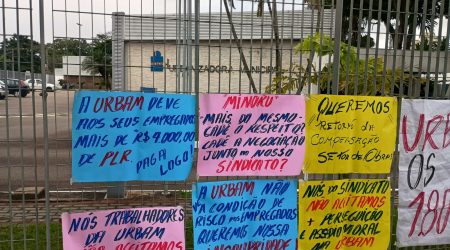 URBANIZADORA MUNICIPAL
A URBAM DEVE
AOS SEUS EMPREGADOS
MAIS DE R$ 4.000,00
DE PLR. PAGA LOGO!
MINORU
MAIS DO MESMO-
CADÊ O RESPEITO?
CADÊ A NEGOCIAÇÃO
JUNTO AO NOSSO
SINDICATO?
QUEREMOS
RETORNO DA
COMPENSAÇÃO
SETOR DE OBRAS
NÓS TRABALHADORES
DA URBAM
NÃO ACEITAMOS
A URBAM NÃO
A CONDIÇÃO DE
RISCO AOS EMPREGADOS
QUEREMOS NOSSA
NÓS DO SINDICATO
NÃO ACEITAMOS
+ PERSEGUIÇÃO
E ASSÉDIO MORAL
NA URBAM
URB
OS
180